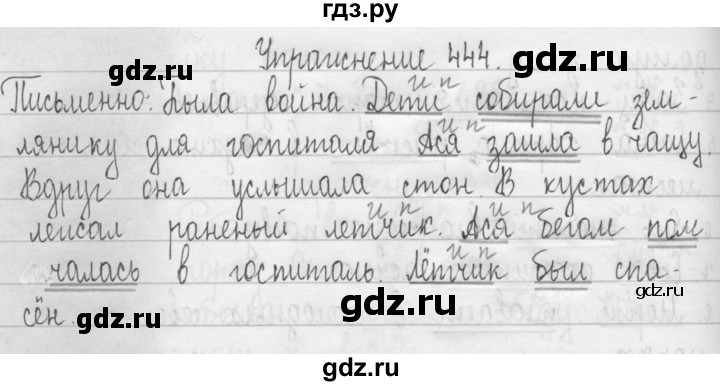 гдз.ру
Упражнение 444.
gdz.ru gdz.ru
и п
Письменно: Была война. Дети собирали зем-
и п
лянику для госпиталя Ася зашла в чащу.
Вдруг она услышала стон. В кустах
и п и п
лежал раненый летчик. Ася бегом пом
и п
чалась в госпиталь. Лётчик был спа-
сён.
gdz.ru gdz.ru
gdz.ru